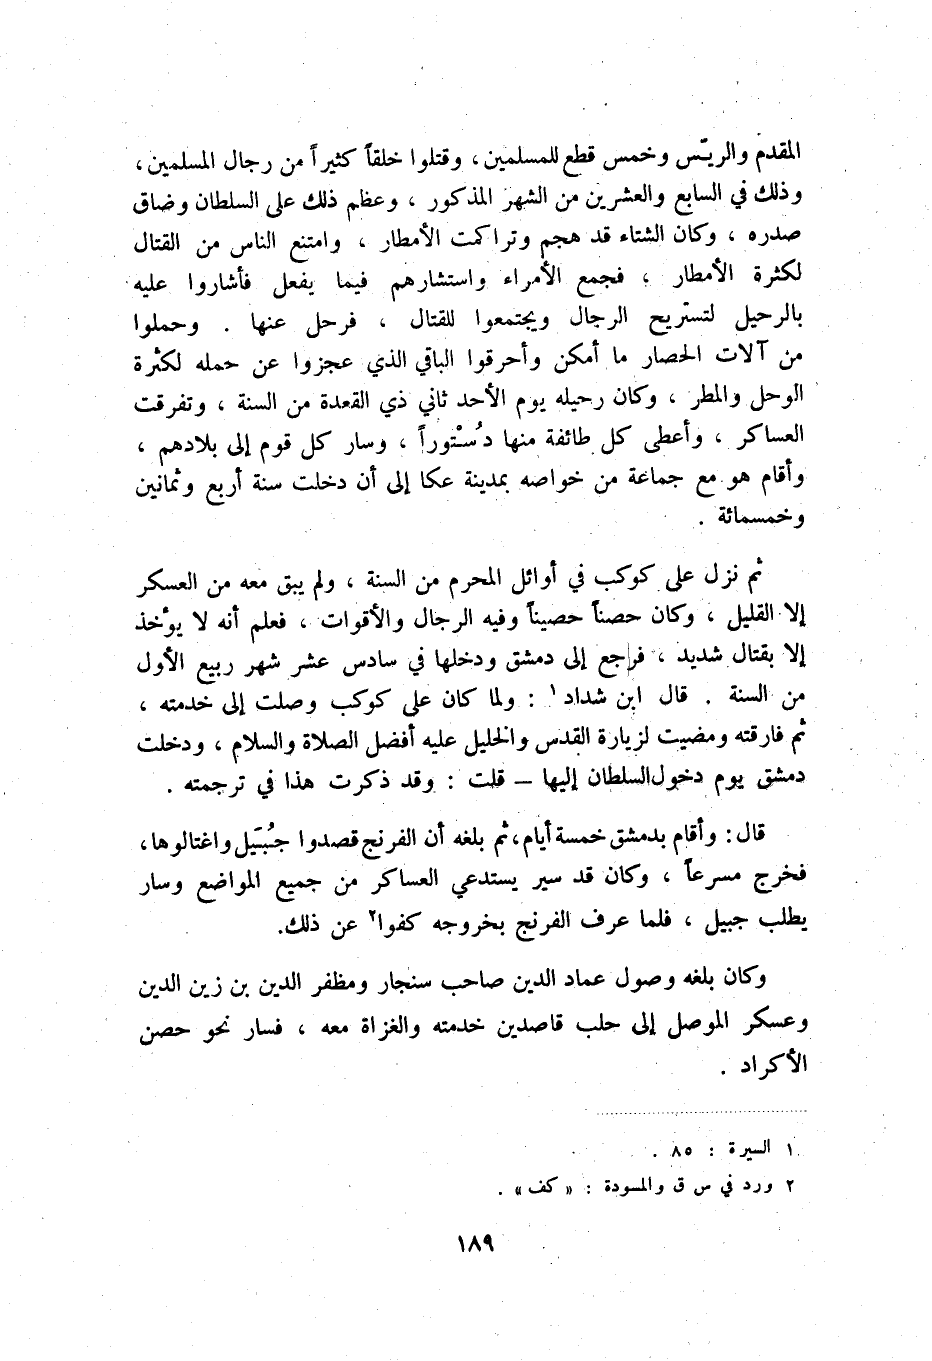 المقدم والريّس وخمس قطع للمسلمين، وقتلوا خلقاً كثيراً من رجال المسلمين ،
وذلك في السابع والعشرين من الشهر المذكور ، وعظم ذلك على السلطان وضاق
صدره ، وكان الشتاء قد هجم وتراكمت الأمطار ، وامتنع الناس من القتال
لكثرة الأمطار ، فجمع الأمراء واستشارهم فيما يفعل فأشاروا عليه
بالرحيل لتستريح الرجال ويجتمعوا للقتال ، فرحل عنها . وحملوا
من آلات الحصار ما أمكن وأحرقوا الباقي الذي عجزوا عن حمله لكثرة
الوحل والمطر ، وكان رحيله يوم الأحد ثاني ذي القعدة من السنة ، وتفرقت
العساكر ، وأعطى كل طائفة منها دُسْتوراً ، وسار كل قوم إلى بلادهم ،
وأقام هو مع جماعة من خواصه بمدينة عكا إلى أن دخلت سنة أربع وثمانين
وخمسمائة .
ثم نزل على كوكب في أوائل المحرم من السنة ، ولم يبق معه من العسكر
إلا القليل ، وكان حصناً حصيناً وفيه الرجال والأقوات ، فعلم أنه لا يؤخذ
إلا بقتال شديد ، فراجع إلى دمشق ودخلها في سادس عشر شهر ربيع الأول
من السنة . قال ابن شداد١ : ولما كان على كوكب وصلت إلى خدمته ،
ثم فارقته ومضيت لزيارة القدس والخليل عليه أفضل الصلاة والسلام ، ودخلت
دمشق يوم دخول السلطان إليها – قلت : وقد ذكرت هذا في ترجمته .
قال: وأقام بدمشق خمسة أيام، ثم بلغه أن الفرنج قصدوا جُبَيل واغتالوها،
فخرج مسرعاً ، وكان قد سير يستدعي العساكر من جميع المواضع وسار
يطلب جبيل ، فلما عرف الفرنج بخروجه كفوا٢ عن ذلك.
وكان بلغه وصول عماد الدين صاحب سنجار ومظفر الدين بن زين الدين
وعسكر الموصل إلى حلب قاصدين خدمته والغزاة معه ، فسار نحو حصن
الأكراد .
١ السيرة : ٨٥ .
٢ ورد في س ق والمسودة : « كف » .
١٨٩